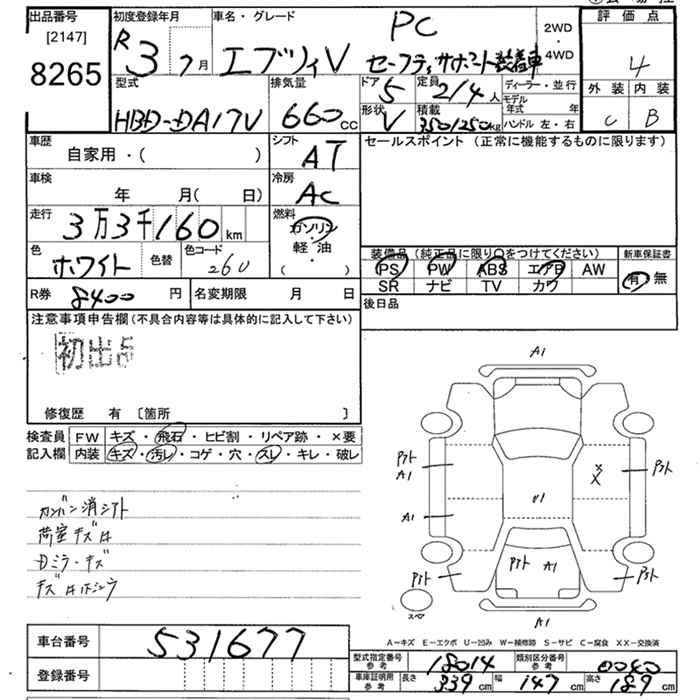 出品番号
[2147]
8265
初度登録年月
R 3 7月
車名・グレード
PC
エブリィV セーフティサポート装着車
2WD
・
4WD
評価点
4
外装 内装
C B
型式
HBD-DA17V
排気量
660cc
ドア 5
定員 2/4人
ディーラー・並行
モデル年式 年
形状 V
積載 350/250kg
ハンドル 左・右
車歴
自家用・( )
シフト
AT
セールスポイント (正常に機能するものに限ります)
車検
年 月(日)
冷房
AC
走行
3万3千160km
燃料
ガソリン
軽油
( ・ )
色
ホワイト
色替
色コード
260
装備品 (純正品に限り○をつけてください)
新車保証書
PS PW ABS エアB AW
SR ナビ TV カワ
有・無
R券 8400円
名変期限 月 日
後日品
注意事項申告欄(不具合内容等は具体的に記入して下さい)
初出品
修復歴 有 [箇所 ]
検査員
記入欄
FW キズ・飛石・ヒビ割・リペア跡・×要
内装 キズ・汚レ・コゲ・穴・スレ・キレ・破レ
カンバン消シアト
荷室キズ凹
Dミラーキズ
A1
A1
A1
A1
A1
スペア
A-キズ E-エクボ U-凹み W-補修跡 S-サビ C-腐食 XX-交換済
車台番号
531677
登録番号
型式指定番号
参考
18014
類別区分番号
参考
0040
車庫証明用
参考
長さ 339cm
幅 147cm
高さ 189cm